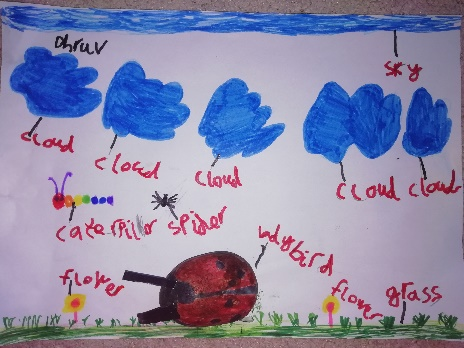 Dhruv
sky
cloud
cloud
cloud
cloud
cloud
caterpillr
spider
ladybird
flower
flower
grass